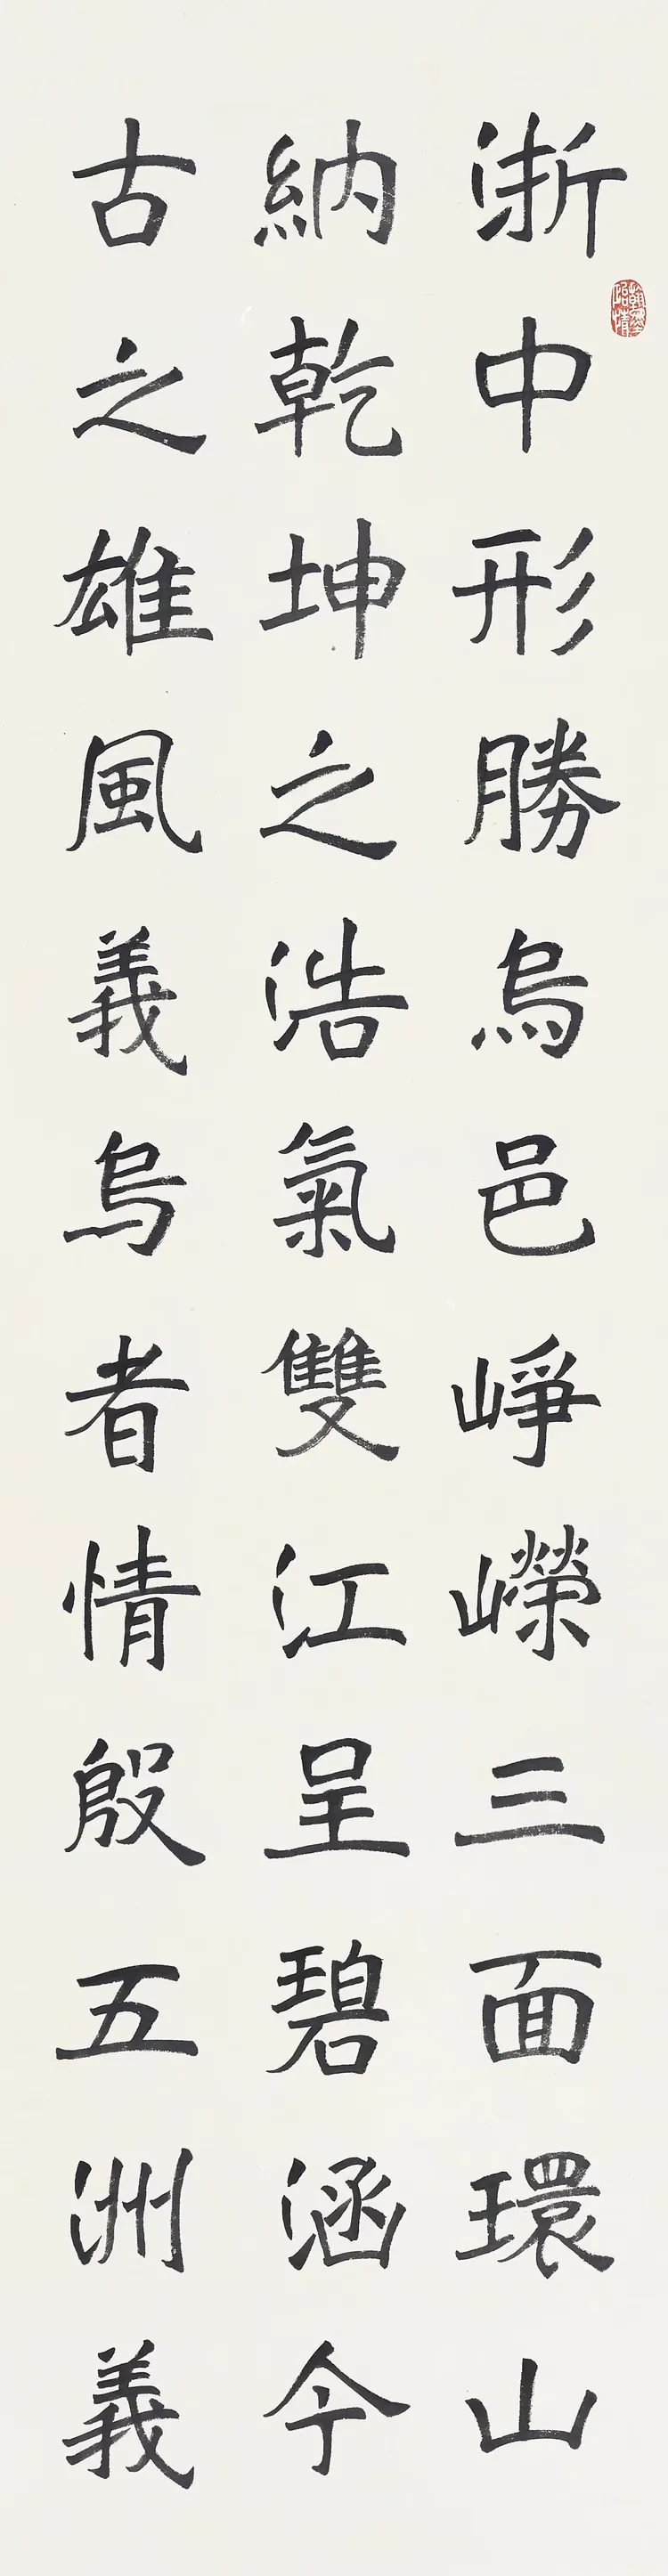 浙中形勝烏邑崢嶸三面環山
納乾坤之浩氣雙江呈碧涵今
古之雄風義烏者情殷五洲義
翰墨怡情